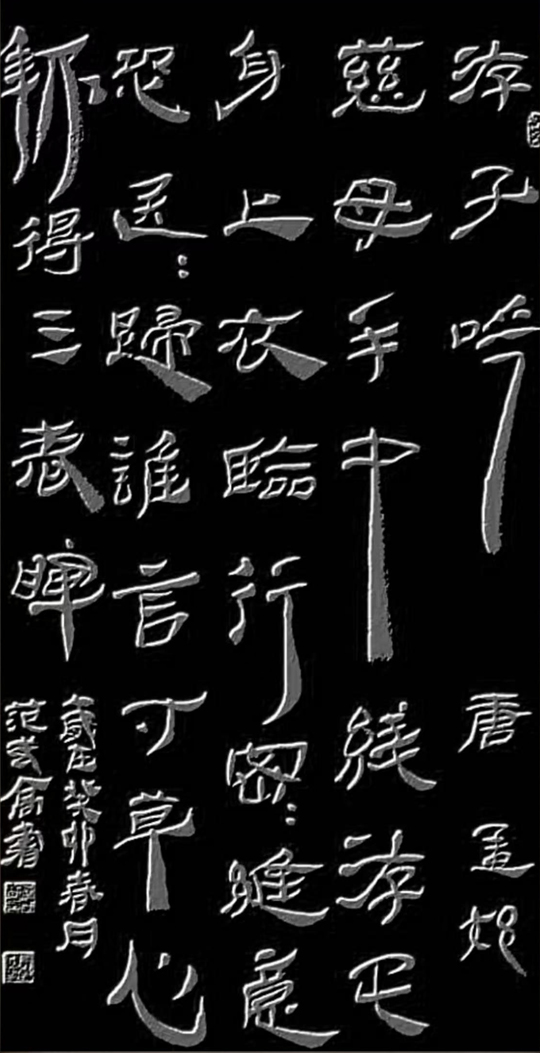 游子吟 唐 孟郊
慈母手中綫游子
身上衣臨行密：縫意
恐遲：歸誰言寸草心
報得三春暉
歲在癸卯春月
范武高書